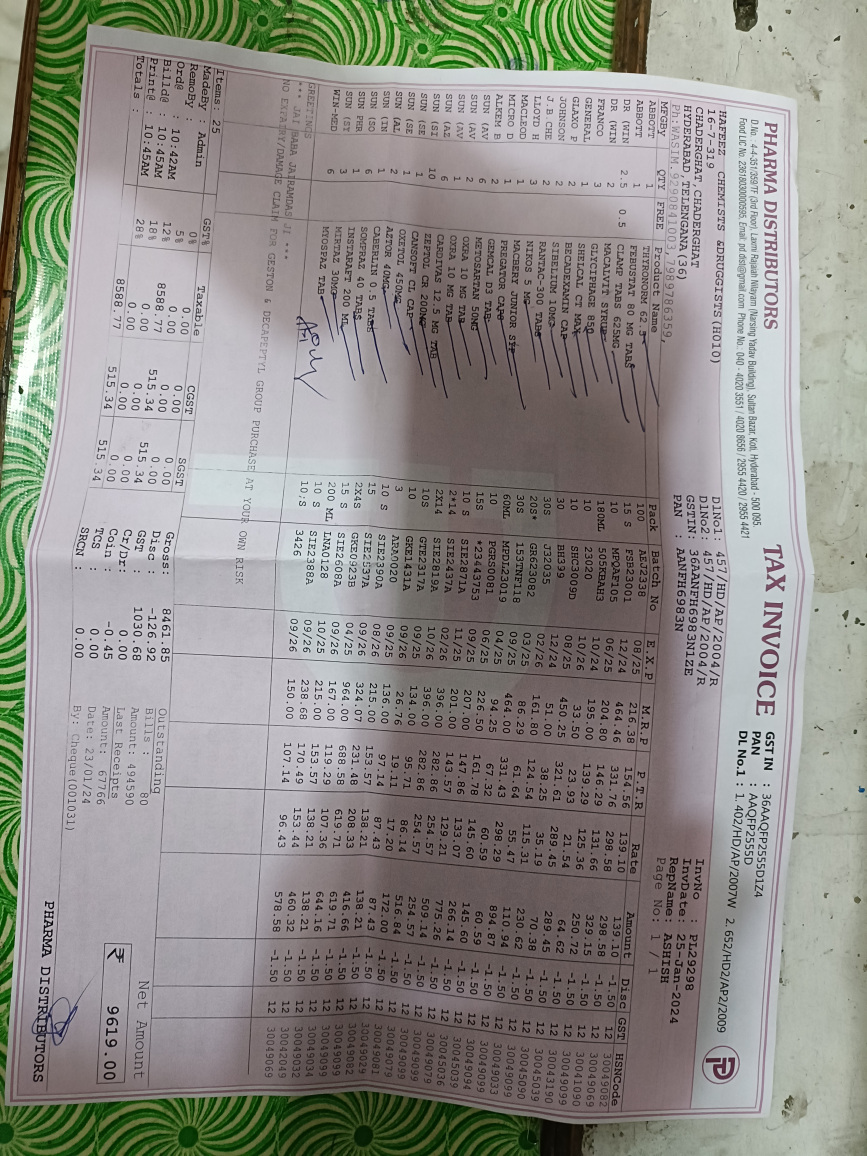 PHARMA DISTRIBUTORS TAX INVOICE
D.No. : 4-4-351/359/TF (3rd Floor), Laxmi Rajaiah Nilayam (Narsing Yadav Building), Sultan Bazar, Koti, Hyderabad - 500 095.
Food LIC No. 23618030000595, Email: pd.dist@gmail.com Phone No.: 040 - 4020 3551 / 4020 8656 / 2955 4420 / 2955 4421
GST IN : 36AAQFP2555D1Z4
PAN : AAQFP2555D
DL No.1 : 1. 402/HD/AP/2007W 2. 652/HD2/AP2/2009
HAFEEZ CHEMISTS &DRUGGISTS(H010) DlNo1: 457/HD/AP/2004/R InvNo : PL29298
16-7-319 DlNo2: 457/HD/AP/2004/R InvDate: 25-Jan-2024
CHADERGHAT, CHADERGHAT GSTIN: 36AANFH6983N1ZE RepName: ASHISH
HYDERABAD, TELENGANA(36) PAN : AANFH6983N Page No: 1 / 1
Ph:WASIM,9290841003,7989786359,
MFGBY QTY FREE Product Name Pack Batch No E.X.P M.R.P P.T.R Rate Amount Disc GST HSNCode
ABBOTT 1 THYRONORM 62.5 100 AEJ2338 08/25 216.38 154.56 139.10 139.10 -1.50 12 30049082
ABBOTT 1 FEBUSTAT 80 MG TABS 15 S FSB23001 12/24 464.46 331.76 298.58 298.58 -1.50 12 30049069
DR (WIN 2.5 0.5 CLAMP TABS 625MG 10 MFQAF105 06/25 204.80 146.29 131.66 329.15 -1.50 12 30041090
DR (WIN 2 MACALVIT SYRUP 180ML 5DPKBAH3 10/24 195.00 139.29 125.36 250.72 -1.50 12 30049099
FRANCO 3 GLYCIPHAGE 850 10 23020 10/26 33.50 23.93 21.54 64.62 -1.50 12
GENERAL 1 SHELCAL CT MAX 10 SHC3009D 08/25 450.25 321.61 289.45 289.45 -1.50 12 30043190
GLAXO 2 BECADEXAMIN CAP 30 BH390 12/24 51.00 38.25 35.19 70.38 -1.50 12 30045039
JOHNSON 2 SIBELIUM 10MG 30S J32035 02/26 161.80 124.54 115.31 230.62 -1.50 12 30045090
J.B CHE 2 RANTAC-300 TABS 20S* GR623082 03/25 86.29 61.64 55.47 110.94 -1.50 12 30049099
LLOYD H 3 NIKOS 5 MG 30S 153TNF118 09/25 464.00 331.43 298.29 894.87 -1.50 12 30049033
MACLEOD 1 MACBERY JUNIOR SYP 60ML MPDL23019 04/25 94.25 67.32 60.59 60.59 -1.50 12 30049099
MICRO D 1 PREGATOR CAPS 10 PGRS0081 06/25 226.50 161.78 145.60 145.60 -1.50 12 30049094
ALKEM B 2 GEMCAL D3 TAB 15S *23443753 09/25 207.00 147.86 133.07 266.14 -1.50 12 30045039
SUN (AV 6 METOSARTAN 50MG 10 S SIE2871A 11/25 201.00 143.57 129.21 775.26 -1.50 12 30045036
SUN (AV 2 OXRA 10 MG TAB 2*14 SIE2437A 02/26 396.00 282.86 254.57 509.14 -1.50 12 30049079
SUN (AV 1 OXRA 10 MG TAB 2X14 SIE2819A 10/26 396.00 282.86 254.57 254.57 -1.50 12 30049099
SUN (AZ 6 CARDIVAS 12.5 MG TAB 10S GTE2317A 09/25 134.00 95.71 86.14 516.84 -1.50 12 30049099
SUN (SI 10 ZEPTOL CR 200MG 10 GKE1431A 09/26 26.76 19.11 17.20 172.00 -1.50 12 30049079
SUN (SE 1 CANSOFT CL CAP 3 ARA0020 09/25 136.00 97.14 87.43 87.43 -1.50 12 30049081
SUN (SE 1 OXETOL 450MG 10 S SIE2390A 08/26 215.00 153.57 138.21 138.21 -1.50 12 30049029
SUN (AL 2 AZTOR 40MG 15 SIE2537A 09/26 324.07 231.48 208.33 416.66 -1.50 12 30049082
SUN (IN 1 CABERLIN 0.5 TABS 2X4S GKE0923B 04/25 964.00 688.58 619.71 619.71 -1.50 12 30049099
SUN (SO 6 SOMPRAZ 40 TABS 15 S SIE2608A 09/26 167.00 119.29 107.36 644.16 -1.50 12 30049034
SUN PHR 1 INSTARAFT 200 ML 200 ML LNA0128 10/25 215.00 153.57 138.21 138.21 -1.50 12 30049032
SUN (SY 3 MIRTAZ 30MG 10 S SIE2388A 09/26 238.68 170.49 153.44 460.32 -1.50 12 30042049
WIN-MED 6 MYOSPAZ TAB 10;S 3426 09/26 150.00 107.14 96.43 578.58 -1.50 12 30049069
GREETINGS
*** JAI BABA JAIRAMDAS JI ***
NO EXPAIRY/DAMAGE CLAIM FOR GESTON & DECAPEPTYL GROUP PURCHASE AT YOUR OWN RISK
Items: 25
MadeBy: Admin GST% Taxable CGST SGST Gross: 8461.85 Outstanding Net Amount
RemoBy : 0% 0.00 0.00 0.00 Disc : -126.92 Bills : 80
Ord@ : 10:42AM 5% 0.00 0.00 0.00 GST : 1030.68 Amount: 494590 ₹ 9619.00
Billd@ : 10:45AM 12% 8588.77 515.34 515.34 Cr/Dr: 0.00 Last Receipts
Print@ : 10:45AM 18% 0.00 0.00 0.00 Coin : -0.45 Amount: 67766
28% 0.00 0.00 0.00 TCS : 0.00 Date: 23/01/24
Totals : 8588.77 515.34 515.34 SRCN : 0.00 By: Cheque(001031)
PHARMA DISTRIBUTORS